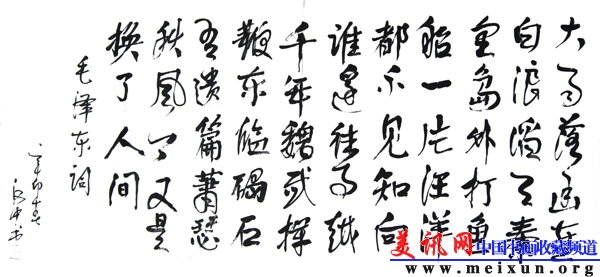 大雨落幽燕
白浪滔天秦
皇島外打魚
船一片汪洋
都不见知向
谁边往事越
千年魏武挥
鞭东临碣石
有遗篇萧瑟
秋风今又是
换了人间
毛泽东词
美讯网
中国书画收藏频道
www.meixun.org